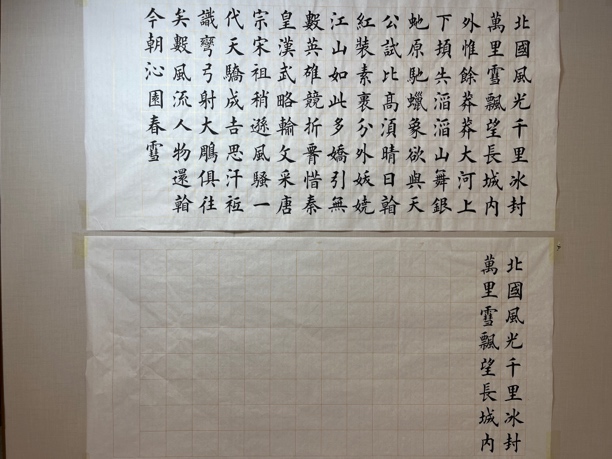 北國風光千里冰封
萬里雪飄望長城内
外惟餘莽莽大河上
下頓失滔滔山舞銀
虵原馳蠟象欲與天
公試比高須晴日看
紅裝素裹分外妖嬈
江山如此多嬌引無
數英雄競折腰惜秦
皇漢武略輸文采唐
宗宋祖稍遜風騷一
代天驕成吉思汗祗
識彎弓射大鵰俱往
矣數風流人物還看
今朝沁園春雪
北國風光千里冰封
萬里雪飄望長城内